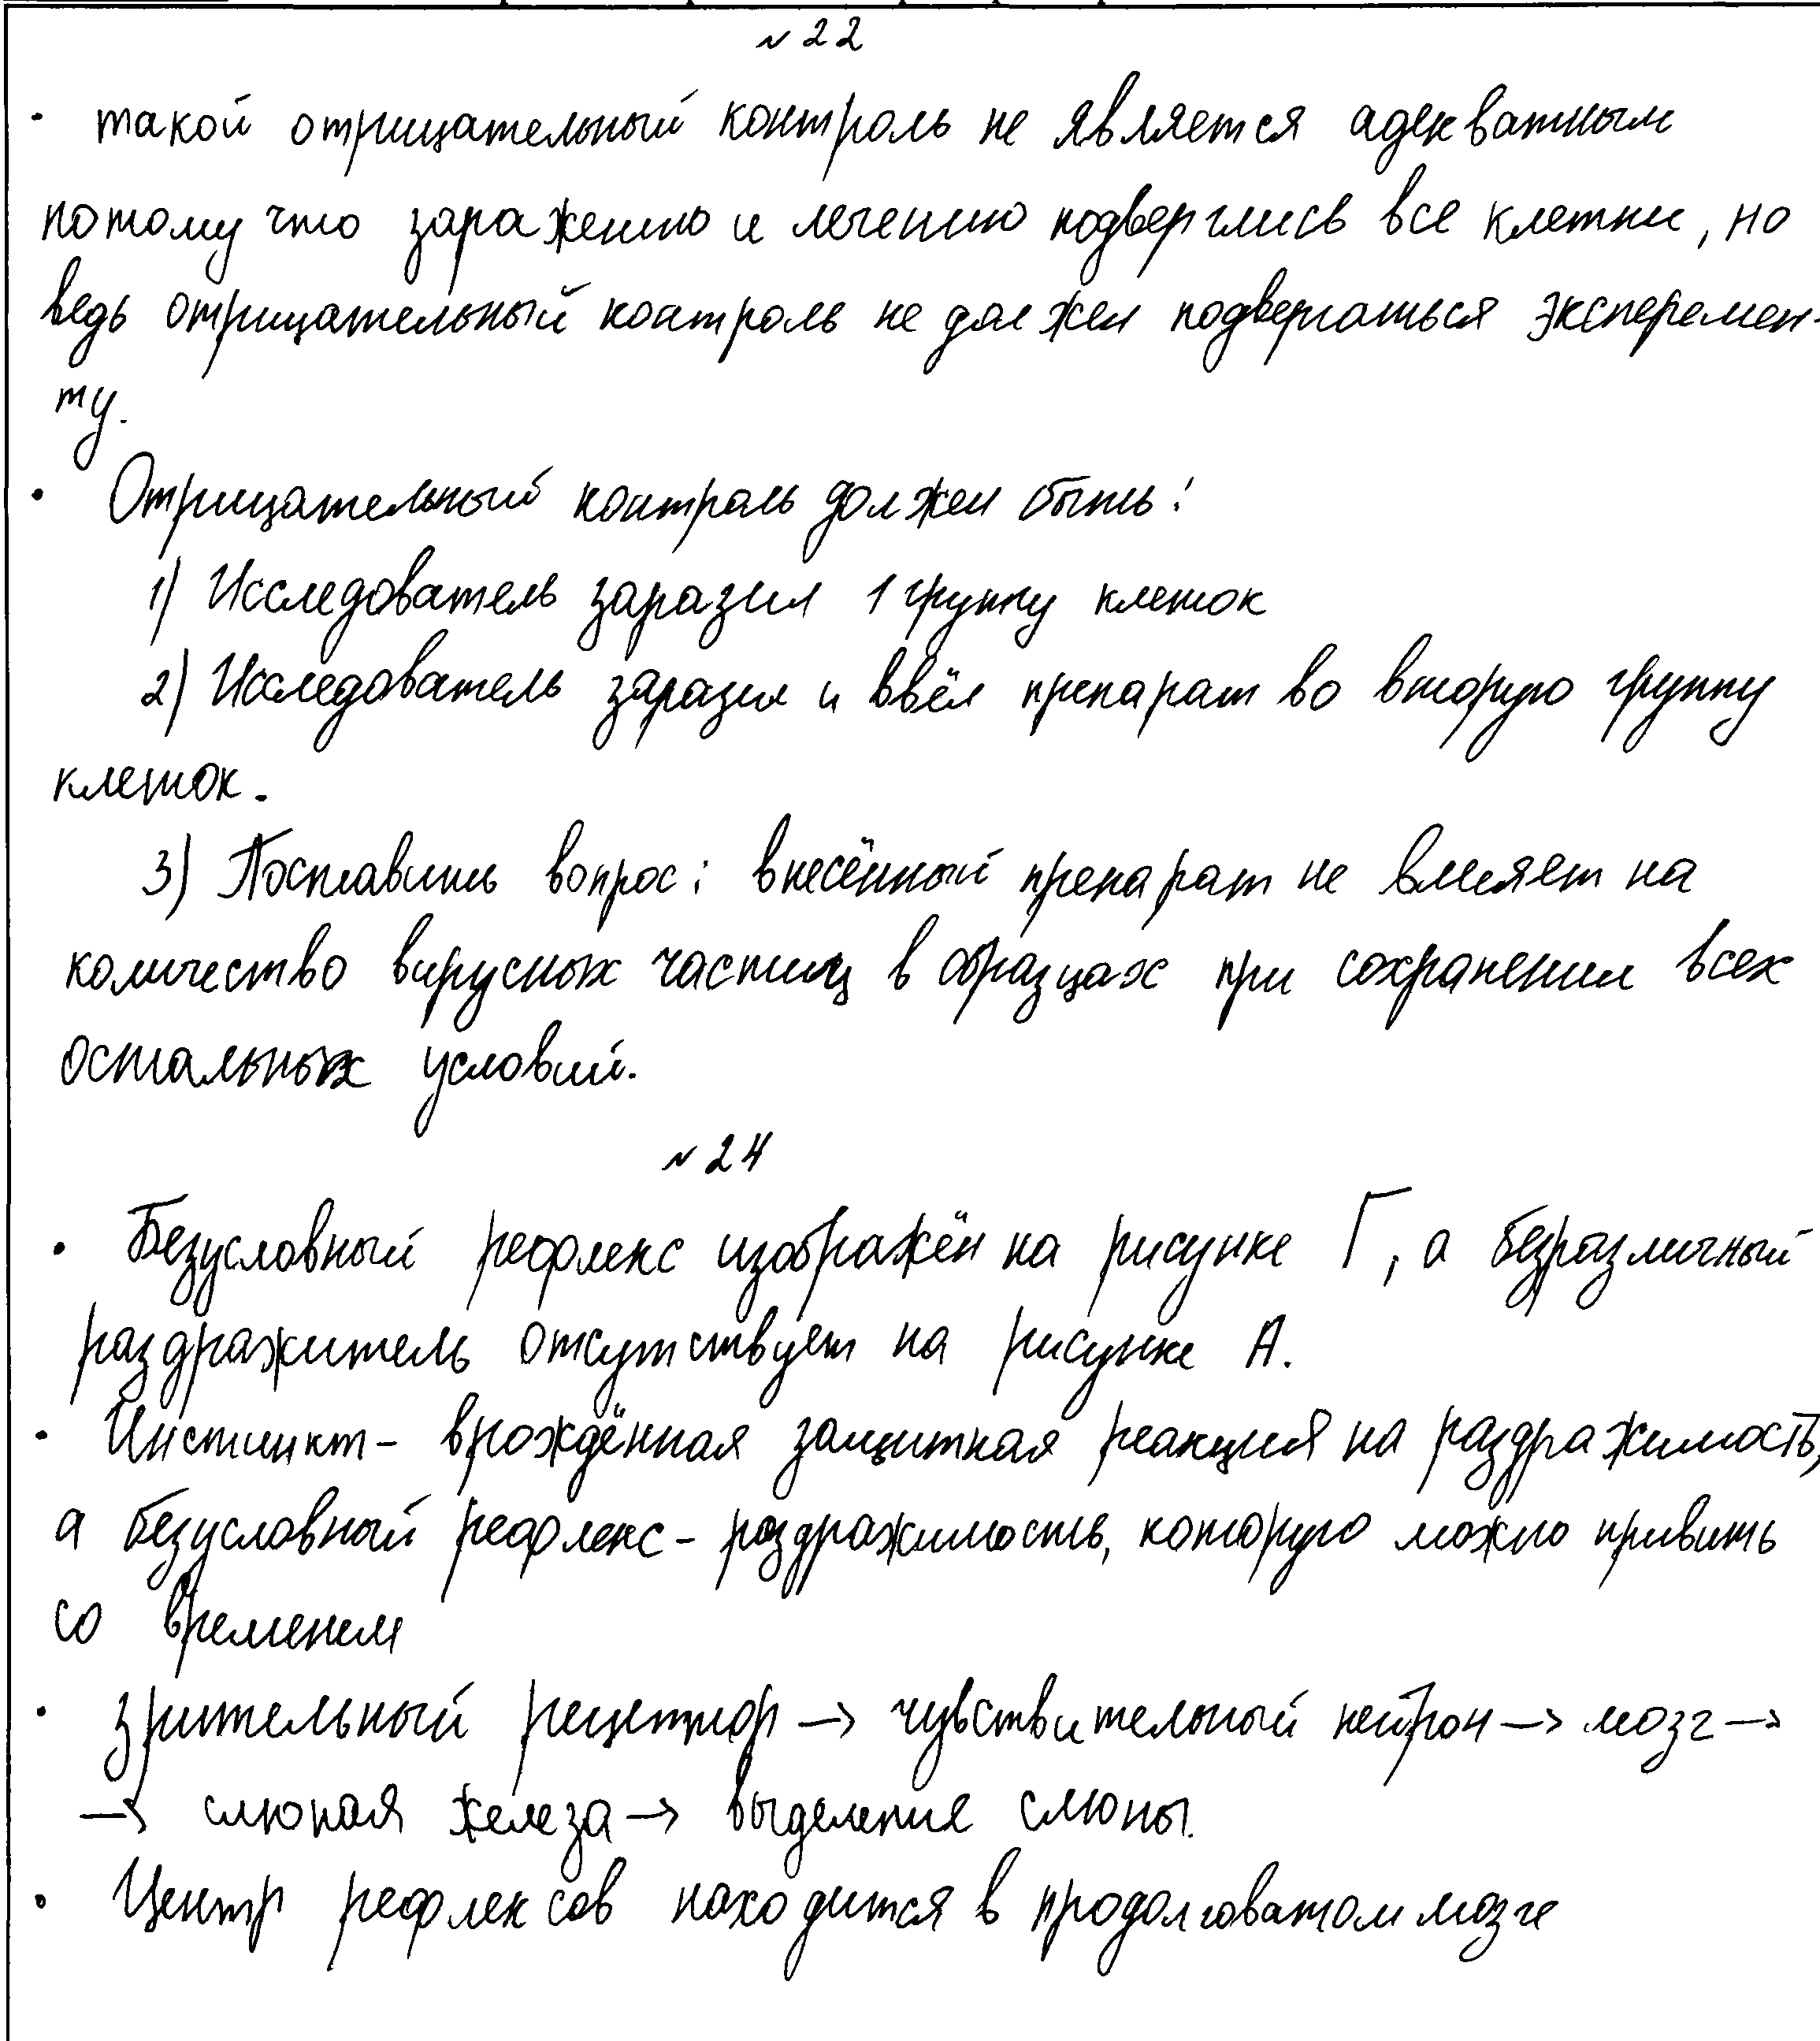 № 22
· такой отрицательный контроль не является адекватным
потому что заражению и лечению подверглись все клетки, но
ведь отрицательный контроль не должен подвергаться эксперемен-
ту.
· Отрицательный контроль должен быть:
1) Исследователь заразил 1 группу клеток
2) Исследователь заразил и ввёл препарат во вторую группу
клеток.
3) Поставить вопрос: внесённый препарат не влияет на
количество вирусных частиц в образцах при сохранении всех
остальных условий.
№ 24
· Безусловный рефлекс изображён на рисунке Г, а безразличный
раздражитель отсутствует на рисунке А.
· Инстинкт - врождённая защитная реакция на раздражимость,
а безусловный рефлекс - раздражимость, которую можно привить
со временем
· зрительный рецептор → чувствительный нейрон → мозг →
→ слюная железа → выделение слюны.
· Центр рефлексов находится в продолговатом мозге